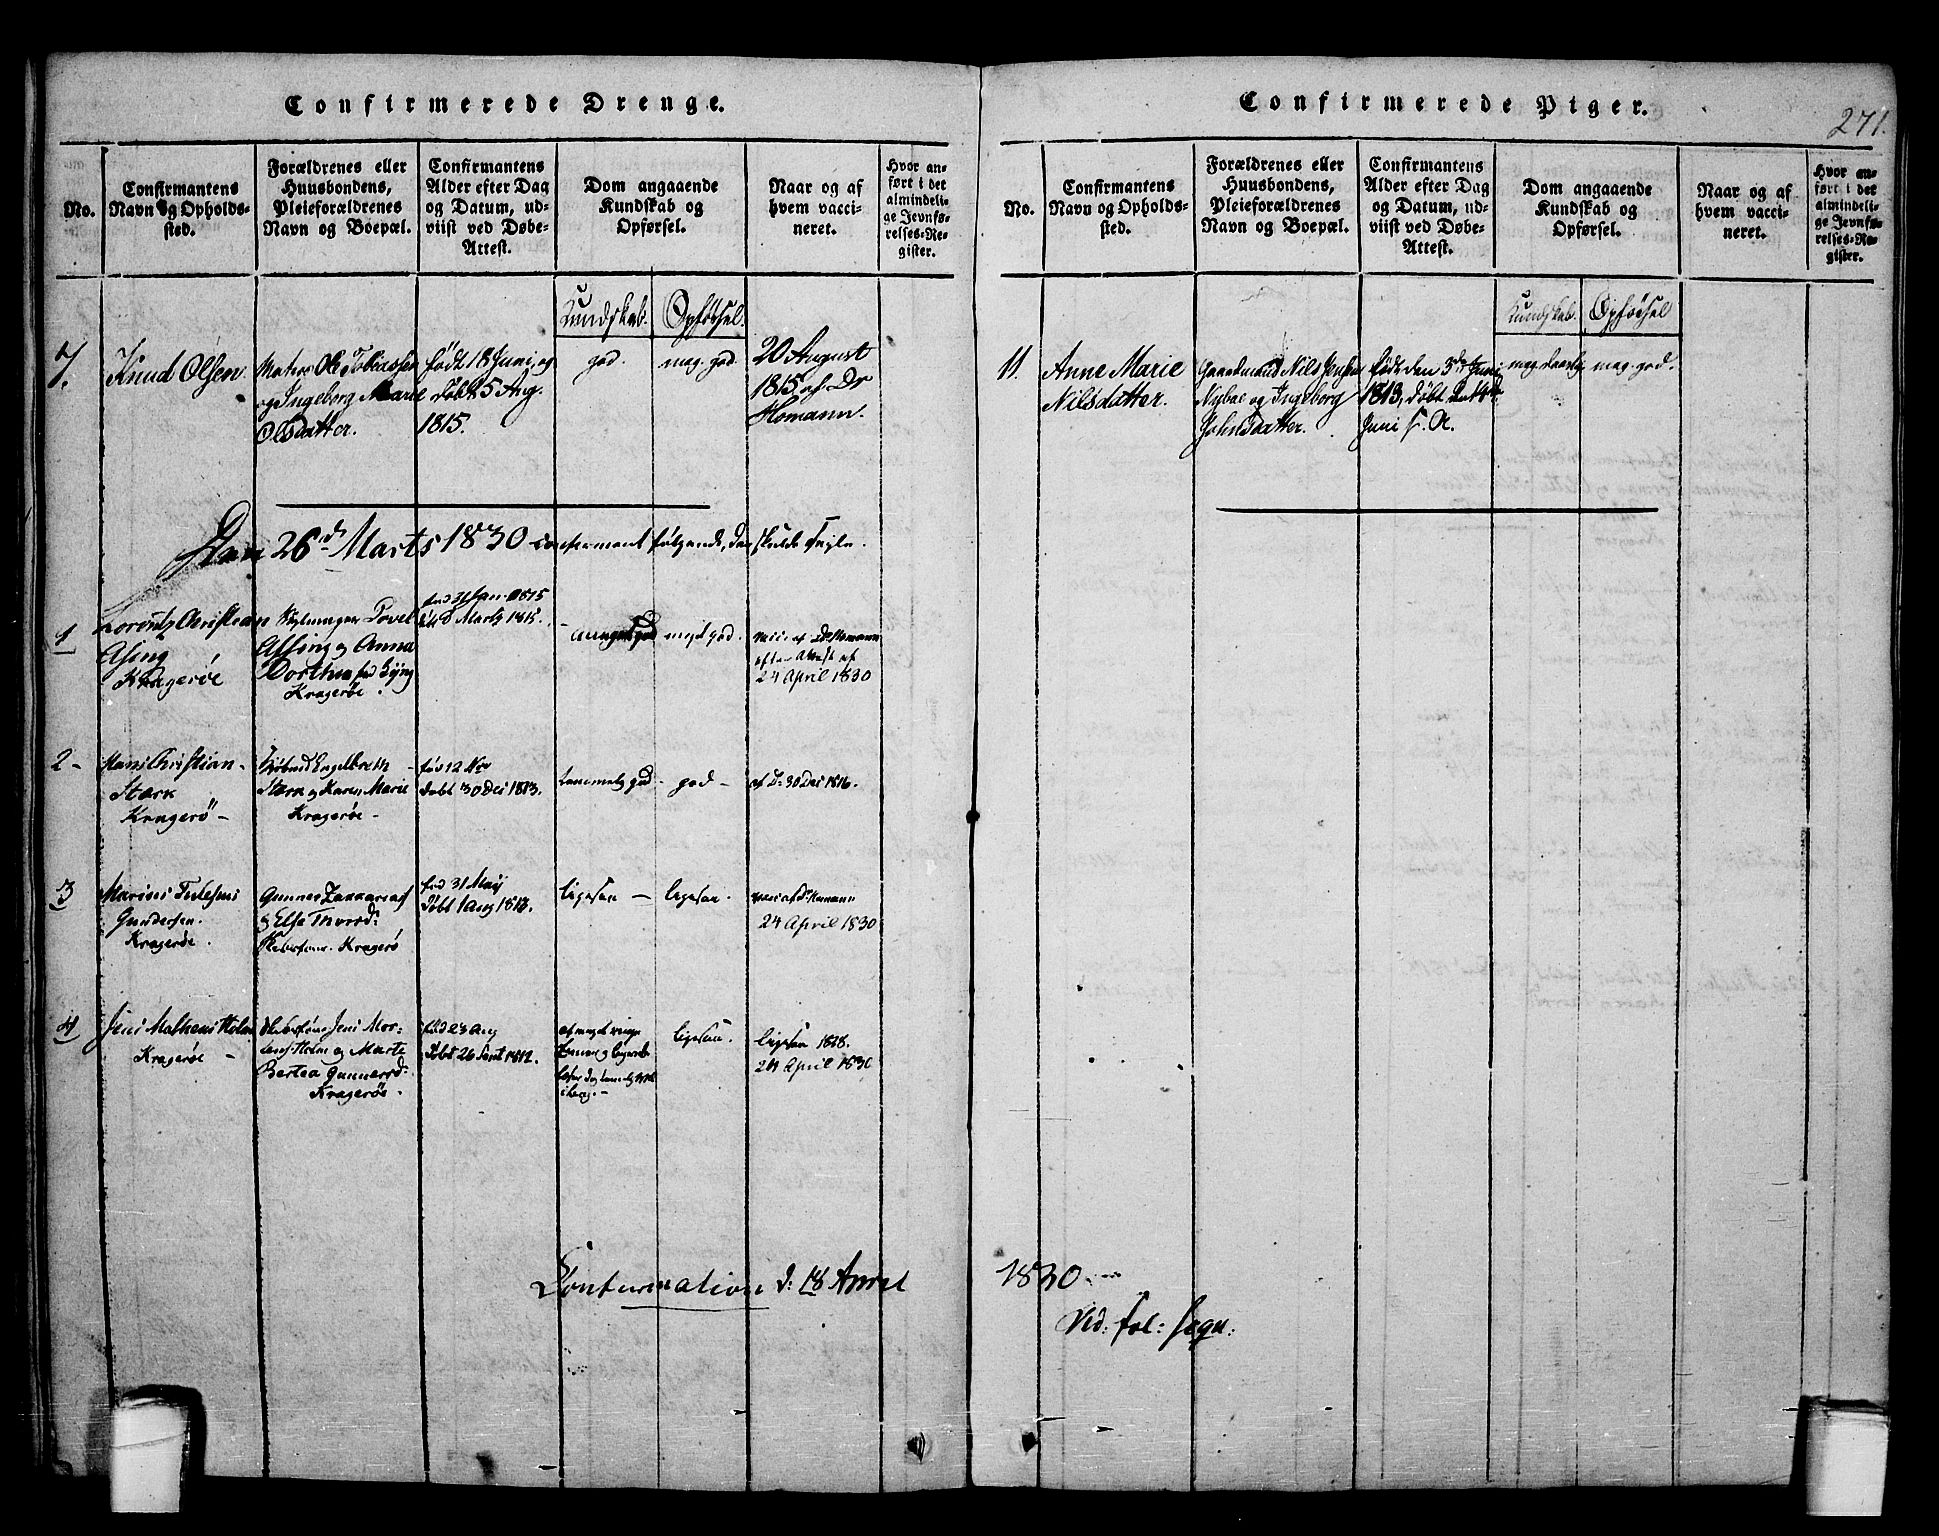 Confirmerede Drenge.
No.
Confirmantens
Navn og Opholds-
sted.
Forældrenes eller
Huusbondens,
Pleieforældrenes
Navn og Boepæl.
Confirmantens
Alder efter Dag
og Datum, ud-
viist ved Døbe-
Attest.
Dom angaaende
Kundskab og
Opførsel.
Naar og af
hvem vacci-
neret.
Hvor an-
ført i det
almindeli-
ge Jevnfø-
relses-Re-
gister.
Kundskab.
Opførsel.
7.
Knud Olsen
Matros Ole Tobiassen
og Ingeborg Marie
Olsdatter.
født 18 Juni, og
døbt 5 Aug.
1815.
god.
meg. god.
20 August
1815 af Dr
Homann.
Den 26d Marts 1830 confirmeret følgende, der skulde seyle.
1
Lorentz Christian
Assing
Kragerøe
Povel
Assing og Anna
Dorthea fød
Kragerøe.
fød 31 Jan. 1815
8 Marts 1815.
god
meget god.
vacc. af Dr Homann
efter Attest af
24 April 1830
2 -
Hans Christian -
Stærk
Kragerö -
Engelbreth
Stærk og Karen Marie
Kragerøe -
fød 12 Nov
døbt 30 Dec 1813.
temmelig god -
god -
af D: 30 Dec 1816.
3
Marius
Gundersen.
Kragerøe.
Gunner Zachariasen
og Else Thorsd:
Kragerö
fød 31 May
Døbt 1 Aug 1813.
ligesaa -
ligesaa.
vacc af Dr Homann
24 April 1830
4
Jens Mathias Holm
Kragerøe -
Jens Mor-
tens Holm og Marte
Bertea Gunnersd:
Kragerøe.
fød 23 Aug
Døbt 26 Sept 1812.
af meget ringe
ligesaa.
ligesaa 1828.
24 April 1830
Confirmation d: 18 April
Confirmerede Piger.
271.
No.
Confirmantens
Navn og Opholds-
sted.
Forældrenes eller
Huusbondens,
Pleieforældrenes
Navn og Boepæl.
Confirmantens
Alder efter Dag
og Datum, ud-
viist ved Døbe-
Attest.
Dom angaaende
Kundskab og
Opførsel.
Naar og af
hvem vacci-
neret.
Hvor an-
ført i det
almindeli-
ge Jevnfø-
relses-Re-
gister.
Kundskab.
Opførsel
11.
Anne Marie
Nilsdatter.
Gaardmand Nils Jensen
Nybae og Ingeborg
Johnsdatter.
født den 3die Juni
1813, døbt
Juni s. A.
meg. daarlig
meg. god.
1830
Vid: fol: sequ: